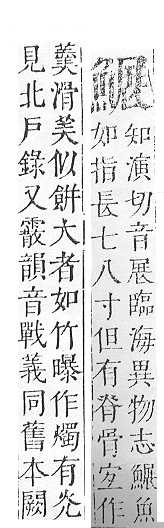 知演切音展臨海異物志魚
如指長七八寸但有脊骨宜作
羹滑美似餅大者如竹曝作燭有光
見北戶錄又霰韻音戰義同舊本闕